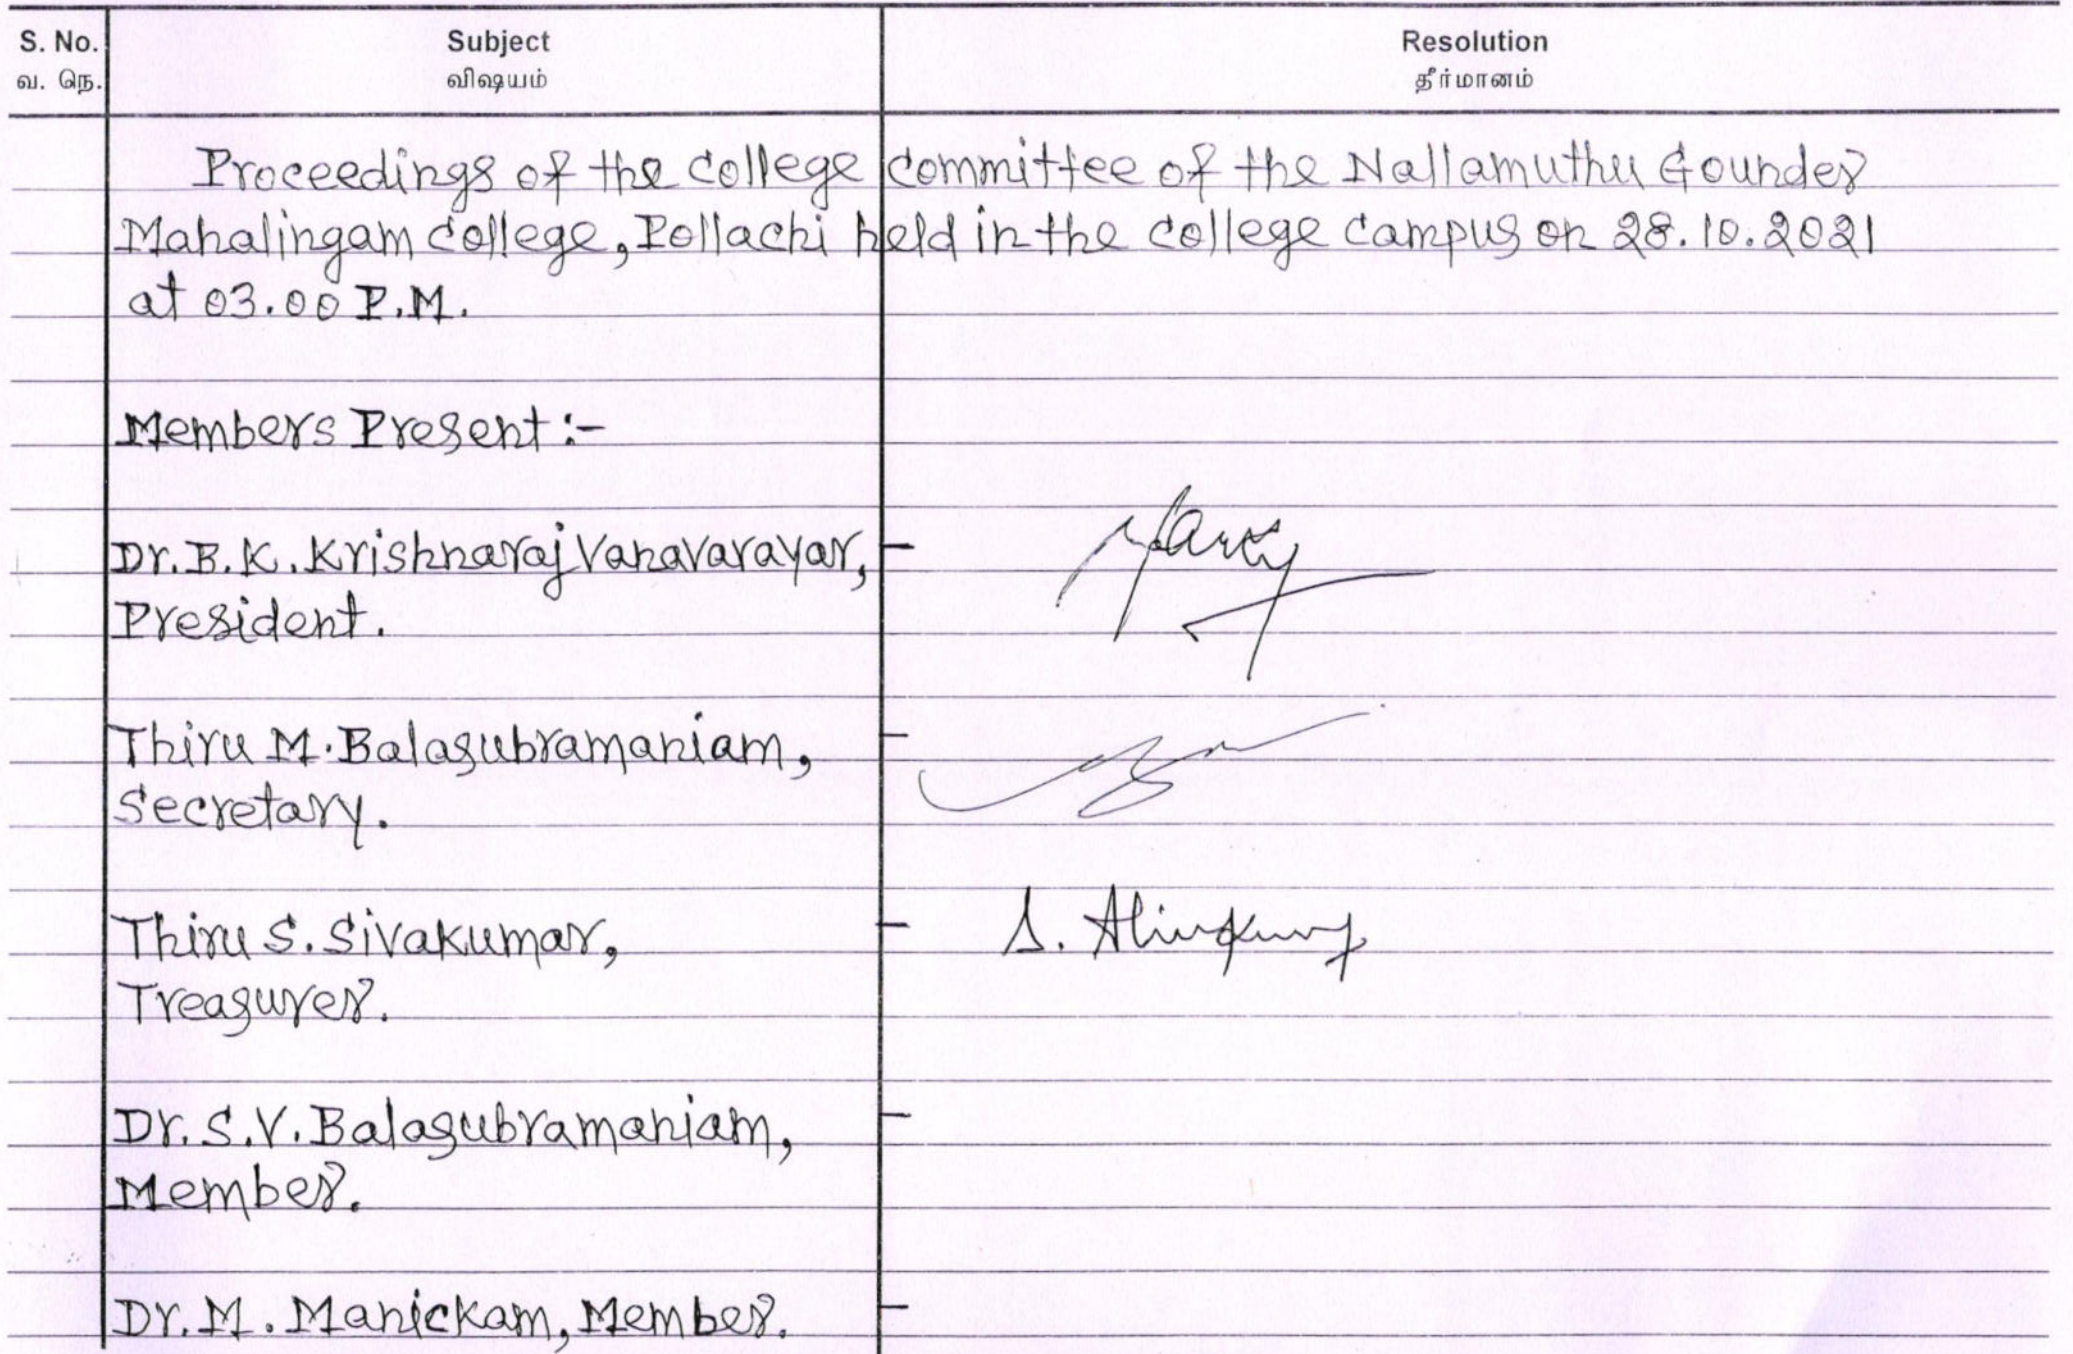 S. No. Subject Resolution
வ. நெ. விஷயம் தீர்மானம்
Proceedings of the college committee of the Nallamuthu Gounder
Mahalingam college, Pollachi held in the college campus on 28.10.2021
at 03.00 P.M.
Members Present :-
Dr. B.K. Krishnaraj Vanavarayar, -
President.
Thiru M. Balasubramaniam, -
Secretary.
Thiru S. Sivakumar, -
Treasurer.
Dr. S.V. Balasubramaniam, -
Member.
Dr. M. Manickam, Member. -